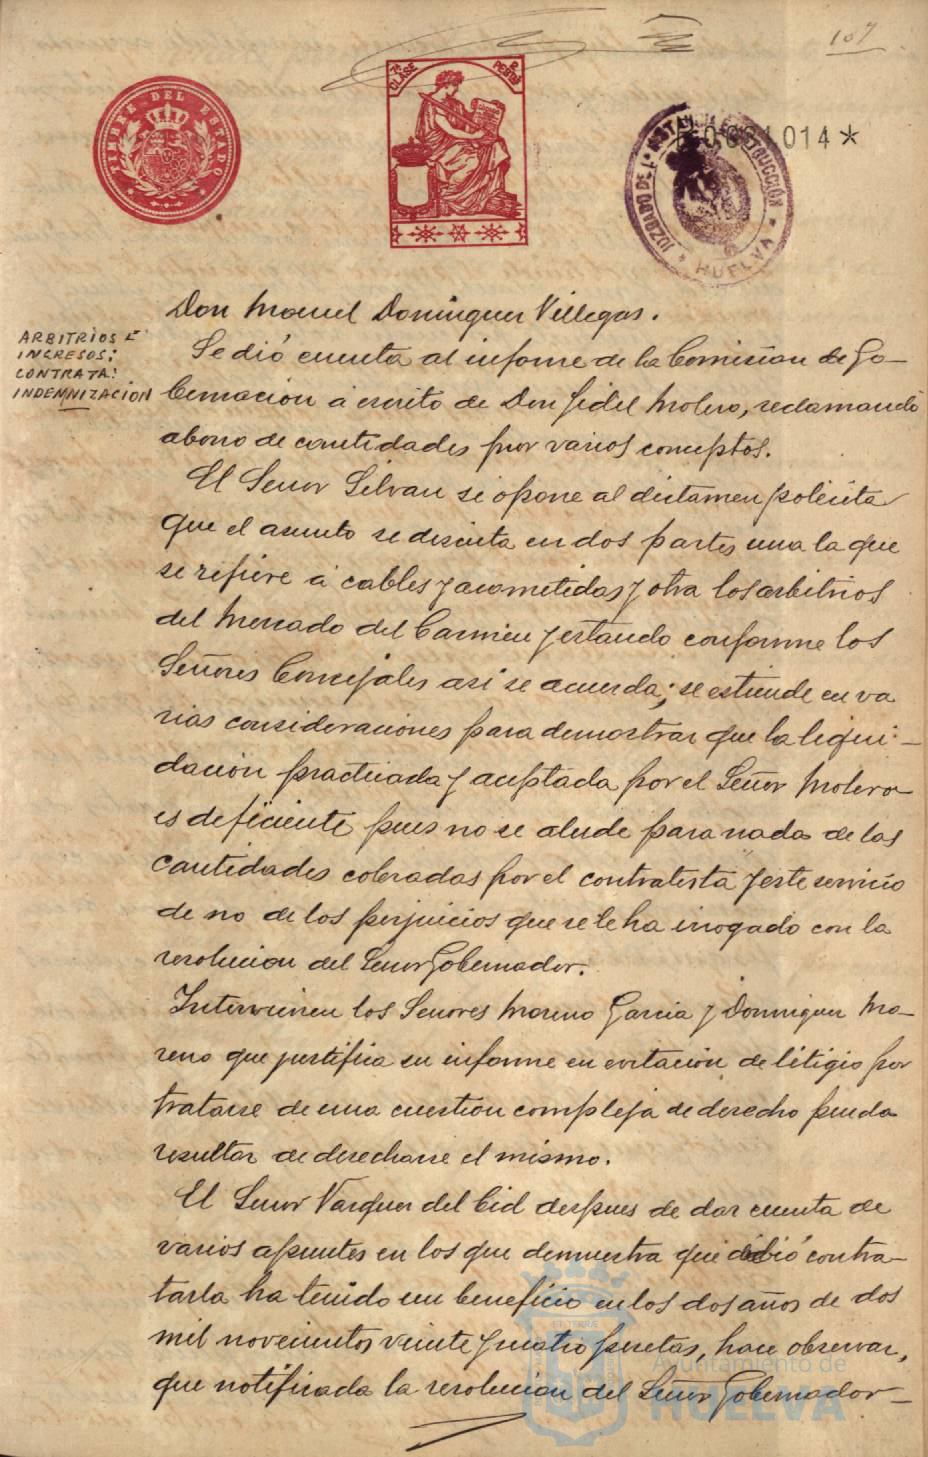 107
TIMBRE DEL ESTADO
7ª CLASE
2 PESETAS
014*
JUZGADO DE 1ª INSTANCIA E INSTRUCCIÓN
* HUELVA *
Don Manuel Dominguez Villegas.
ARBITRIOS E
INGRESOS:
CONTRATA:
INDEMNIZACIÓN
Se dió cuenta al informe de la Comision de Go-
bernacion á escrito de Don Fidel Molero, reclamando
abono de cantidades por varios conceptos.
El Señor Silvan se opone al dictamen y solicita
que el asunto se discuta en dos partes una la que
se refiere á cables y acometidas y otra los arbitrios
del Mercado del Carmen y estando conforme los
Señores Concejales así se acuerda; se estiende en va
rias consideraciones para demostrar que la liqui-
dación practicada y aceptada por el Señor Molero
es deficiente pues no se alude para nada de las
cantidades cobradas por el contratista y este servicio
de no de los perjuicios que se le ha irrogado con la
resolucion del Señor Gobernador.
Intervienen los Señores Moreno Garcia y Dominguez Mo-
reno que justifica su informe en evitación de litigio por
tratarse de una cuestion compleja de derecho pueda
resultar de desecharse el mismo.
El Señor Vazquez del Cid despues de dar cuenta de
varios apuntes en los que demuestra que debió contra-
tarla ha tenido un beneficio en los dos años de dos
mil novecientos veinte y cuatro pesetas, hace observar,
que notificada la resolucion del Señor Gobernador-
Ayuntamiento de
HUELVA